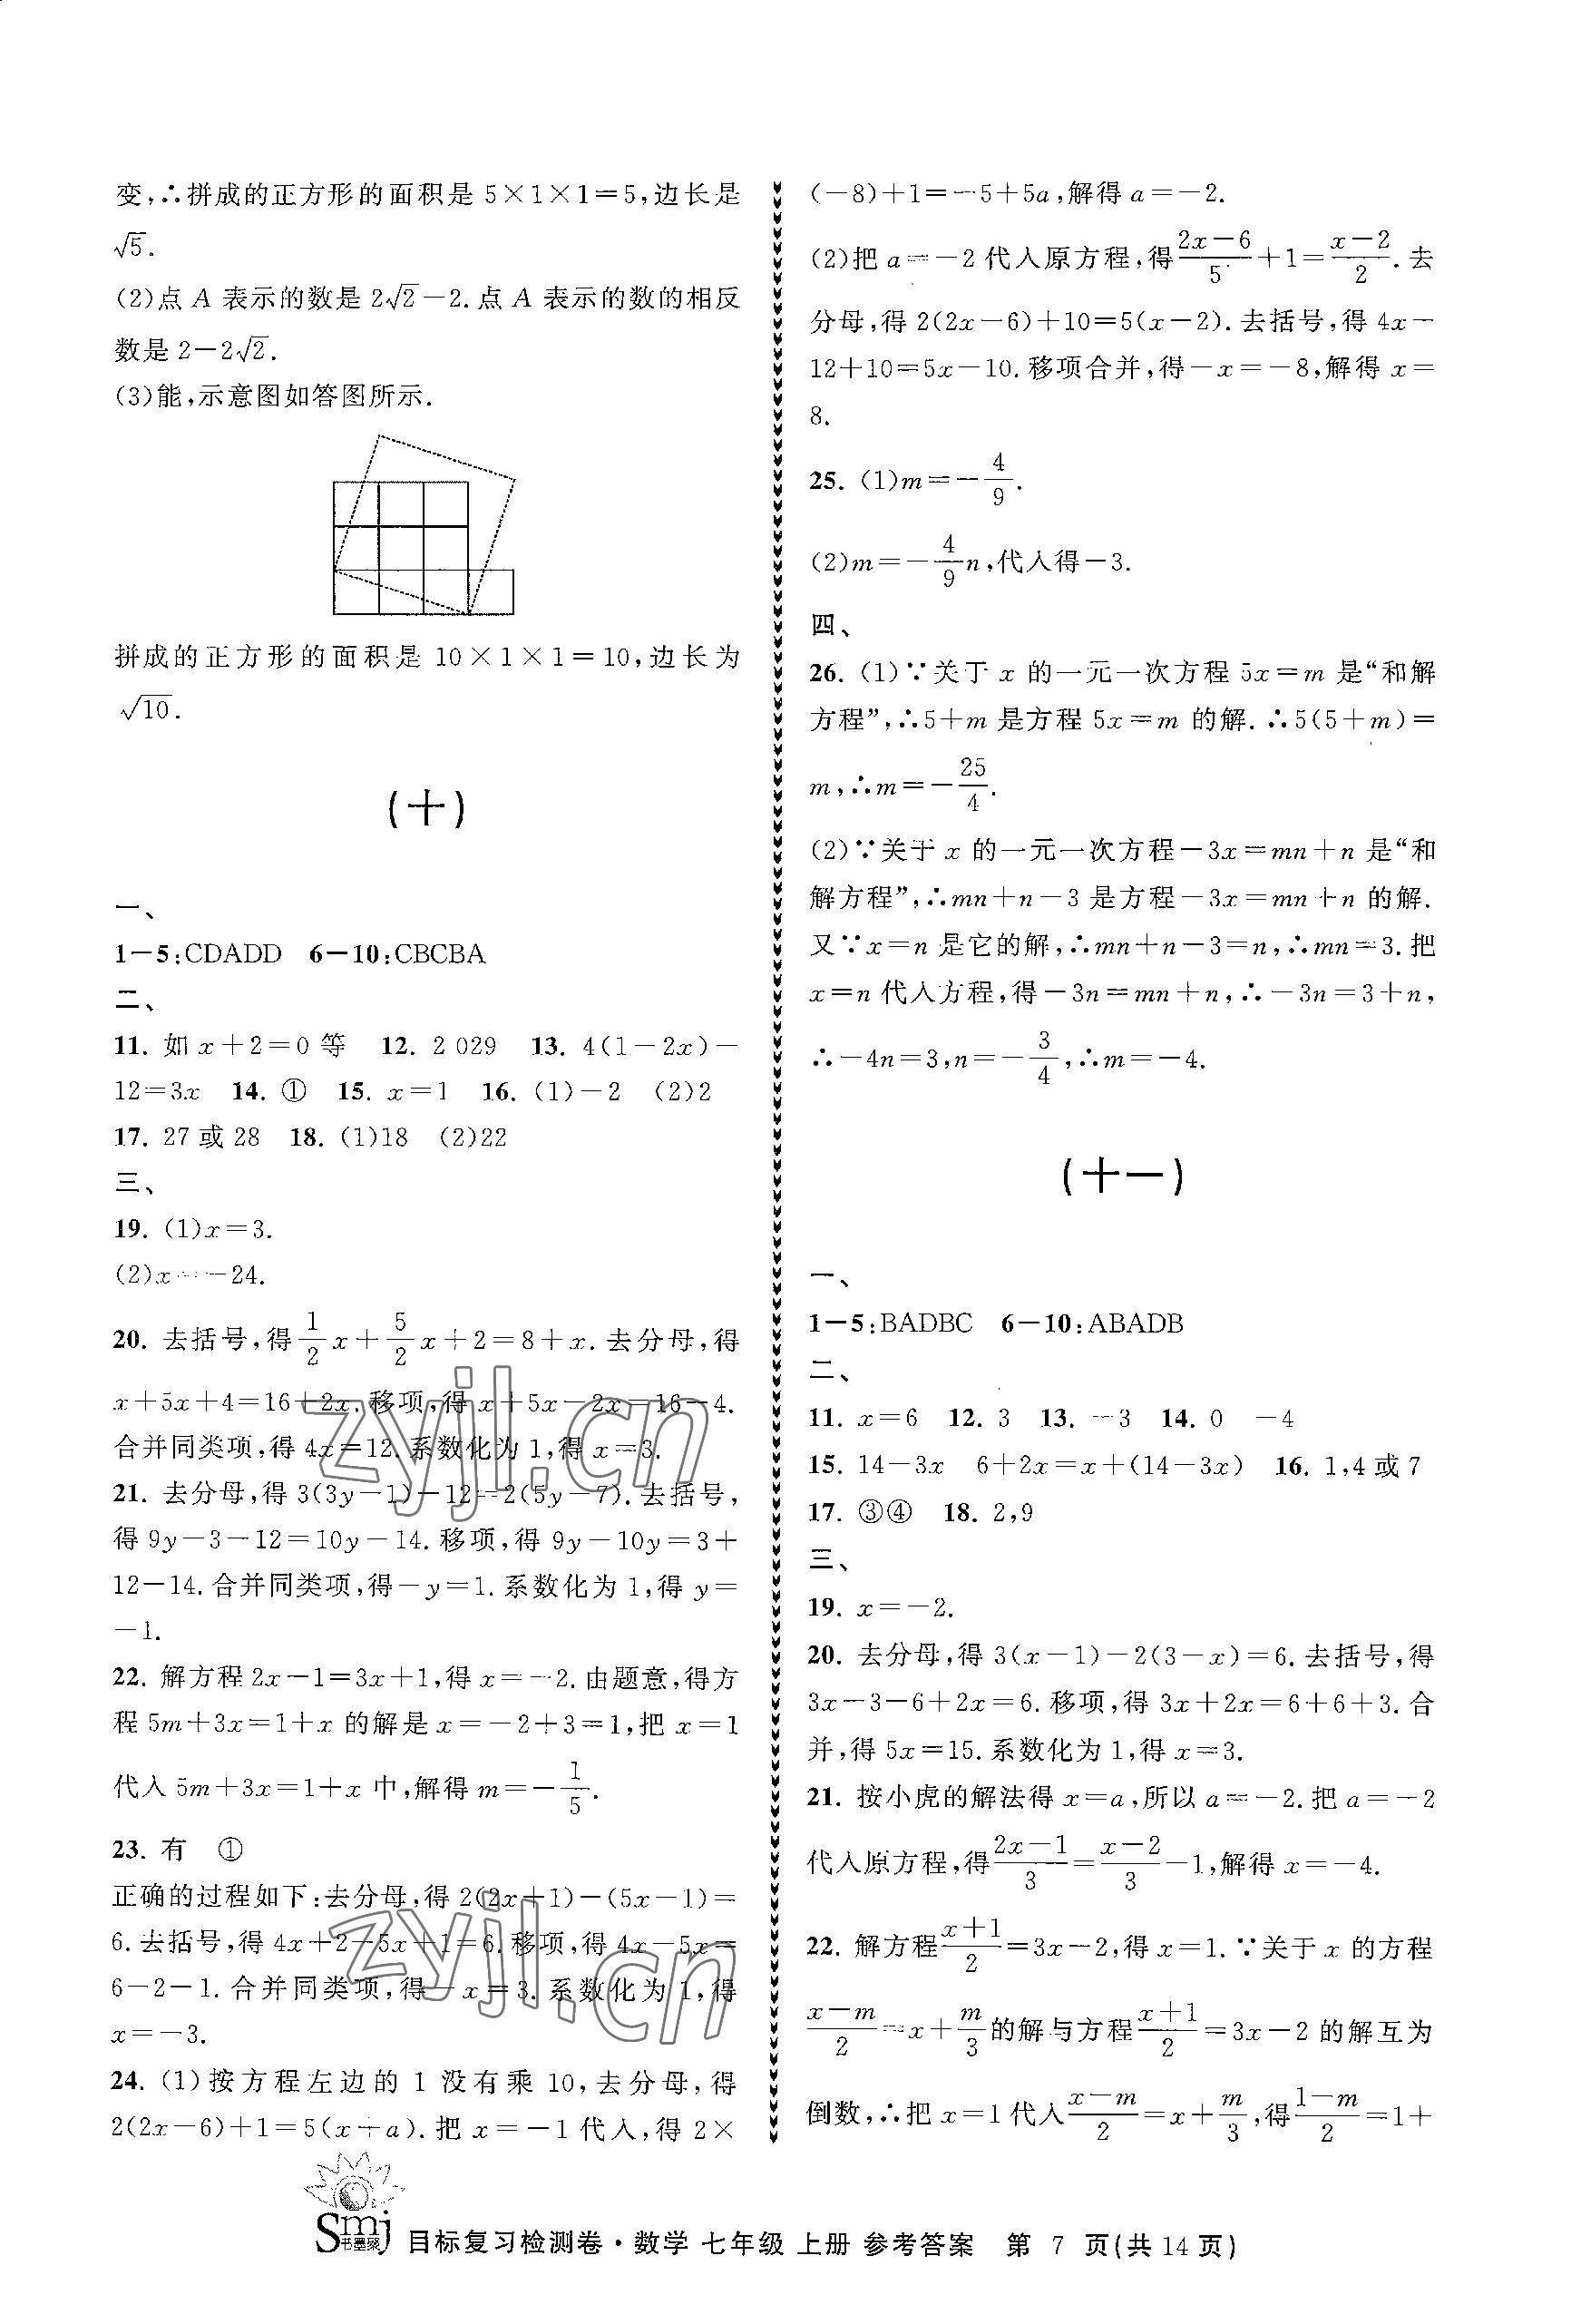 变,∴拼成的正方形的面积是 5×1×1=5,边长是
√5.
(2)点 A 表示的数是 2√2-2.点 A 表示的数的相反
数是 2-2√2.
(3)能,示意图如答图所示.
拼成的正方形的面积是 10×1×1=10,边长为
√10.
(十)
一、
1-5:CDADD 6-10:CBCBA
二、
11. 如 x+2=0 等 12. 2 029 13. 4(1-2x)-
12=3x 14. ① 15. x=1 16. (1)-2 (2)2
17. 27 或 28 18. (1)18 (2)22
三、
19. (1)x=3.
(2)x=-24.
20. 去括号,得 1/2 x+5/2 x+2=8+x. 去分母,得
x+5x+4=16+2x. 移项,得 x+5x-2x=16-4.
合并同类项,得 4x=12. 系数化为 1,得 x=3.
21. 去分母,得 3(3y-1)-12=2(5y-7). 去括号,
得 9y-3-12=10y-14. 移项,得 9y-10y=3+
12-14. 合并同类项,得-y=1. 系数化为 1,得 y=
-1.
22. 解方程 2x-1=3x+1,得 x=-2. 由题意,得方
程 5m+3x=1+x 的解是 x=-2+3=1,把 x=1
代入 5m+3x=1+x 中,解得 m=-1/5.
23. 有 ①
正确的过程如下:去分母,得 2(2x+1)-(5x-1)=
6. 去括号,得 4x+2-5x+1=6. 移项,得 4x-5x=
6-2-1. 合并同类项,得-x=3. 系数化为 1,得
x=-3.
24. (1)按方程左边的 1 没有乘 10,去分母,得
2(2x-6)+1=5(x+a). 把 x=-1 代入,得 2×
(-8)+1=-5+5a,解得 a=-2.
(2)把 a=-2 代入原方程,得 (2x-6)/5+1=(x-2)/2. 去
分母,得 2(2x-6)+10=5(x-2). 去括号,得 4x-
12+10=5x-10. 移项合并,得-x=-8,解得 x=
8.
25. (1)m=-4/9.
(2)m=-4/9 n,代入得-3.
四、
26. (1)∵关于 x 的一元一次方程 5x=m 是“和解
方程”,∴5+m 是方程 5x=m 的解. ∴5(5+m)=
m,∴m=-25/4.
(2)∵关于 x 的一元一次方程-3x=mn+n 是“和
解方程”,∴mn+n-3 是方程-3x=mn+n 的解.
又∵x=n 是它的解,∴mn+n-3=n,∴mn=3. 把
x=n 代入方程,得-3n=mn+n,∴-3n=3+n,
∴-4n=3,n=-3/4,∴m=-4.
(十一)
一、
1-5:BADBC 6-10:ABADB
二、
11. x=6 12. 3 13. -3 14. 0 -4
15. 14-3x 6+2x=x+(14-3x) 16. 1,4 或 7
17. ③④ 18. 2,9
三、
19. x=-2.
20. 去分母,得 3(x-1)-2(3-x)=6. 去括号,得
3x-3-6+2x=6. 移项,得 3x+2x=6+6+3. 合
并,得 5x=15. 系数化为 1,得 x=3.
21. 按小虎的解法得 x=a,所以 a=-2. 把 a=-2
代入原方程,得 (2x-1)/3=(x-2)/3-1,解得 x=-4.
22. 解方程 (x+1)/2=3x-2,得 x=1. ∵关于 x 的方程
(x-m)/2=x+m/3 的解与方程 (x+1)/2=3x-2 的解互为
倒数,∴把 x=1 代入 (x-m)/2=x+m/3,得 (1-m)/2=1+
zyjl.cn
zyjl.cn
Smj 书墨聚
目标复习检测卷·数学 七年级 上册 参考答案 第 7 页(共 14 页)